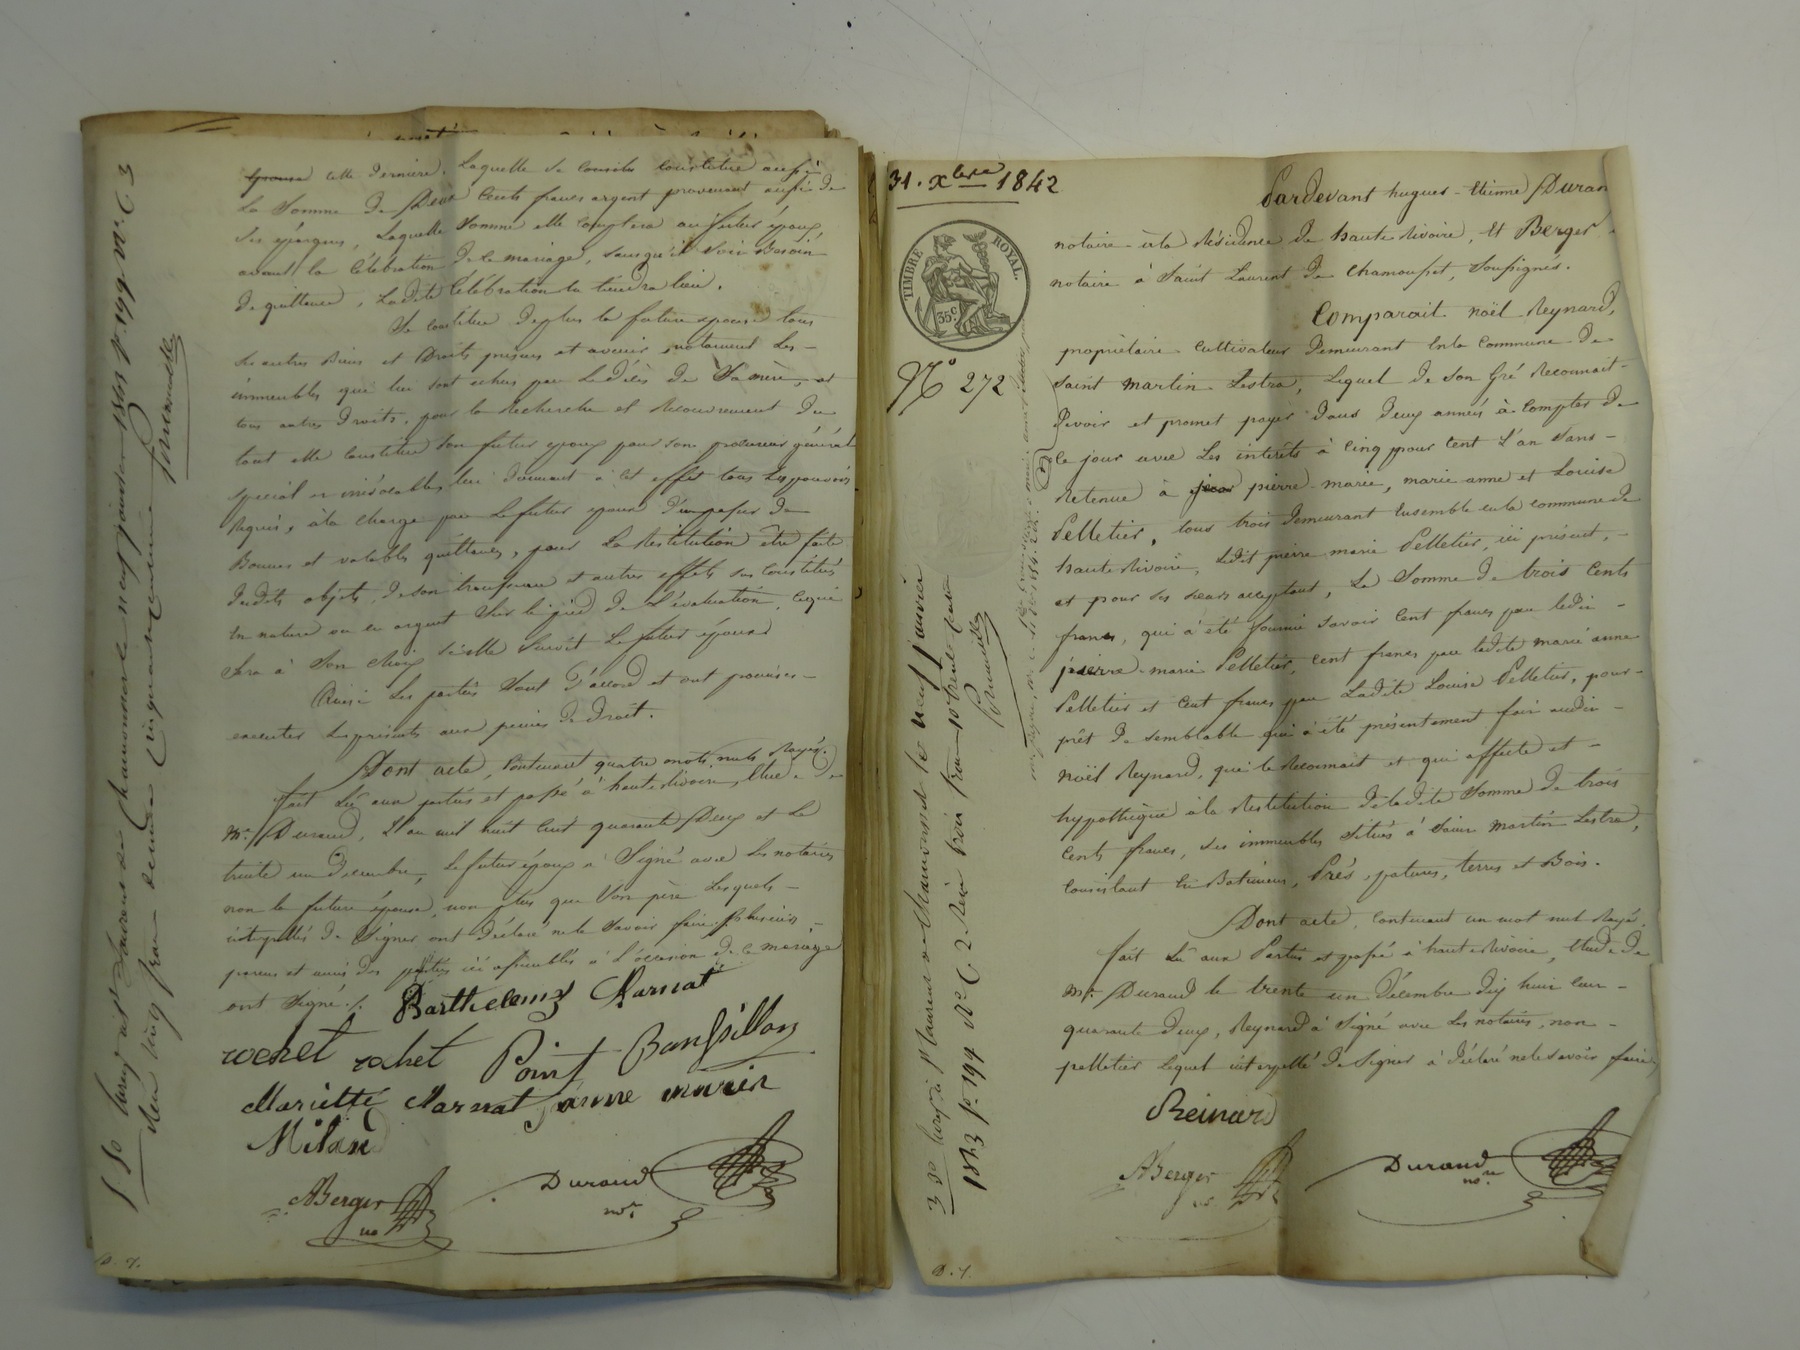 épouse cette dernière. Laquelle se constitue aussi
la somme de deux cents francs argent provenant aussi de
ses épargnes, laquelle somme elle comptera au futur époux,
avant la célébration de ce mariage, sans qu'il soit besoin
de quittance, ladite célébration en tiendra lieu.
Se constitue de plus la future épouse tous
ses autres biens et droits présens et avenir, notament les
immeubles qui lui sont echus par le décès de sa mère, et
tous autres droits, pour la recherche et recouvrement du
tout elle constitue son futur epoux pour son procureur général
spécial et irrévocable, lui donnant à cet effet tous les pouvoirs
requis, à la charge par le futur epoux d'en passer de
Bonnes et valables quittances, pour la restitution être faite
desdits objets, de son trousseau et autres effets sus constitués
en nature ou en argent sur le pied de l'évaluation, ce qui
sera à son choix si elle survit le futur époux.
Ainsi les parties sont d'accord et ont promis
executer les présents aux peines de droit.
Dont acte, contenant quatre mots nuls rayés.
fait lu aux parties et passé à hauterivoire, étude de
Me. Durand, L'an mil huit cent quarante deux et le
trente un décembre, le futur époux a signé avec les notaires
non la future épouse, non plus que son père lesquels
interpellés de signer ont déclaré ne le savoir faire, plusieurs
parens et amis des parties ici assemblés à l'occasion de ce mariage
ont signé ./. Barthelemy Marnat
rochet rochet Point Banssillon
Mariette Marnat jeanne marie
Milan
ABerger Durand
no nre
D. 7.
31. Xbre 1842
TIMBRE ROYAL.
35c
No 272
Pardevant hugues-Etienne Duran
notaire à la Résidence de hauterivoire, Et Berger
notaire à Saint Laurent de Chamousset, soussignés.
Comparait noël Reynard,
propriétaire cultivateur demeurant en la commune de
saint martin Lestra, Lequel de son gré reconnait
Devoir et promet payer dans deux années à compter de
ce jour avec les intérêts à cinq pour cent l'an sans
retenue à jean pierre-marie, marie-anne et Louise
Pelletier, tous trois demeurant ensemble en la commune de
hauterivoire, ledit pierre marie Pelletier, ici présent,
et pour ses sœurs acceptant, la somme de trois cents
francs, qui a été fournie savoir cent francs par ledit
pierre-marie Pelletier, cent francs par ladite marie anne
Pelletier et cent francs par Ladite Louise Pelletier, pour
prêt de semblable qui a été présentement fait audit
noël Reynard, qui le reconnait et qui affecte et
hypothèque à la restitution de ladite somme de trois
cents francs, ses immeubles situés à Saint martin Lestra,
consistant en Batimens, Prés, patures, terres et Bois.
Dont acte, contenant un mot nul rayé.
fait lû aux Parties et passé à hauterivoire, étude de
Me. Durand le trente un décembre dix huit cent
quarante deux, Reynard a signé avec les notaires, non
pelletier lequel interpellé de signer a déclaré ne le savoir faire
Reinard
ABerger Durand
no nre
D. 7.